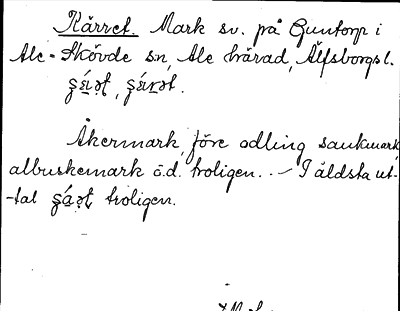 Kärret. Mark sv. på Guntorp i
Ale-Skövde sn, Ale härad, Älfsborgs l.
Åkermark, före odling sankmark,
albuskemark o.d. troligen. – I äldsta ut-
-tal troligen.